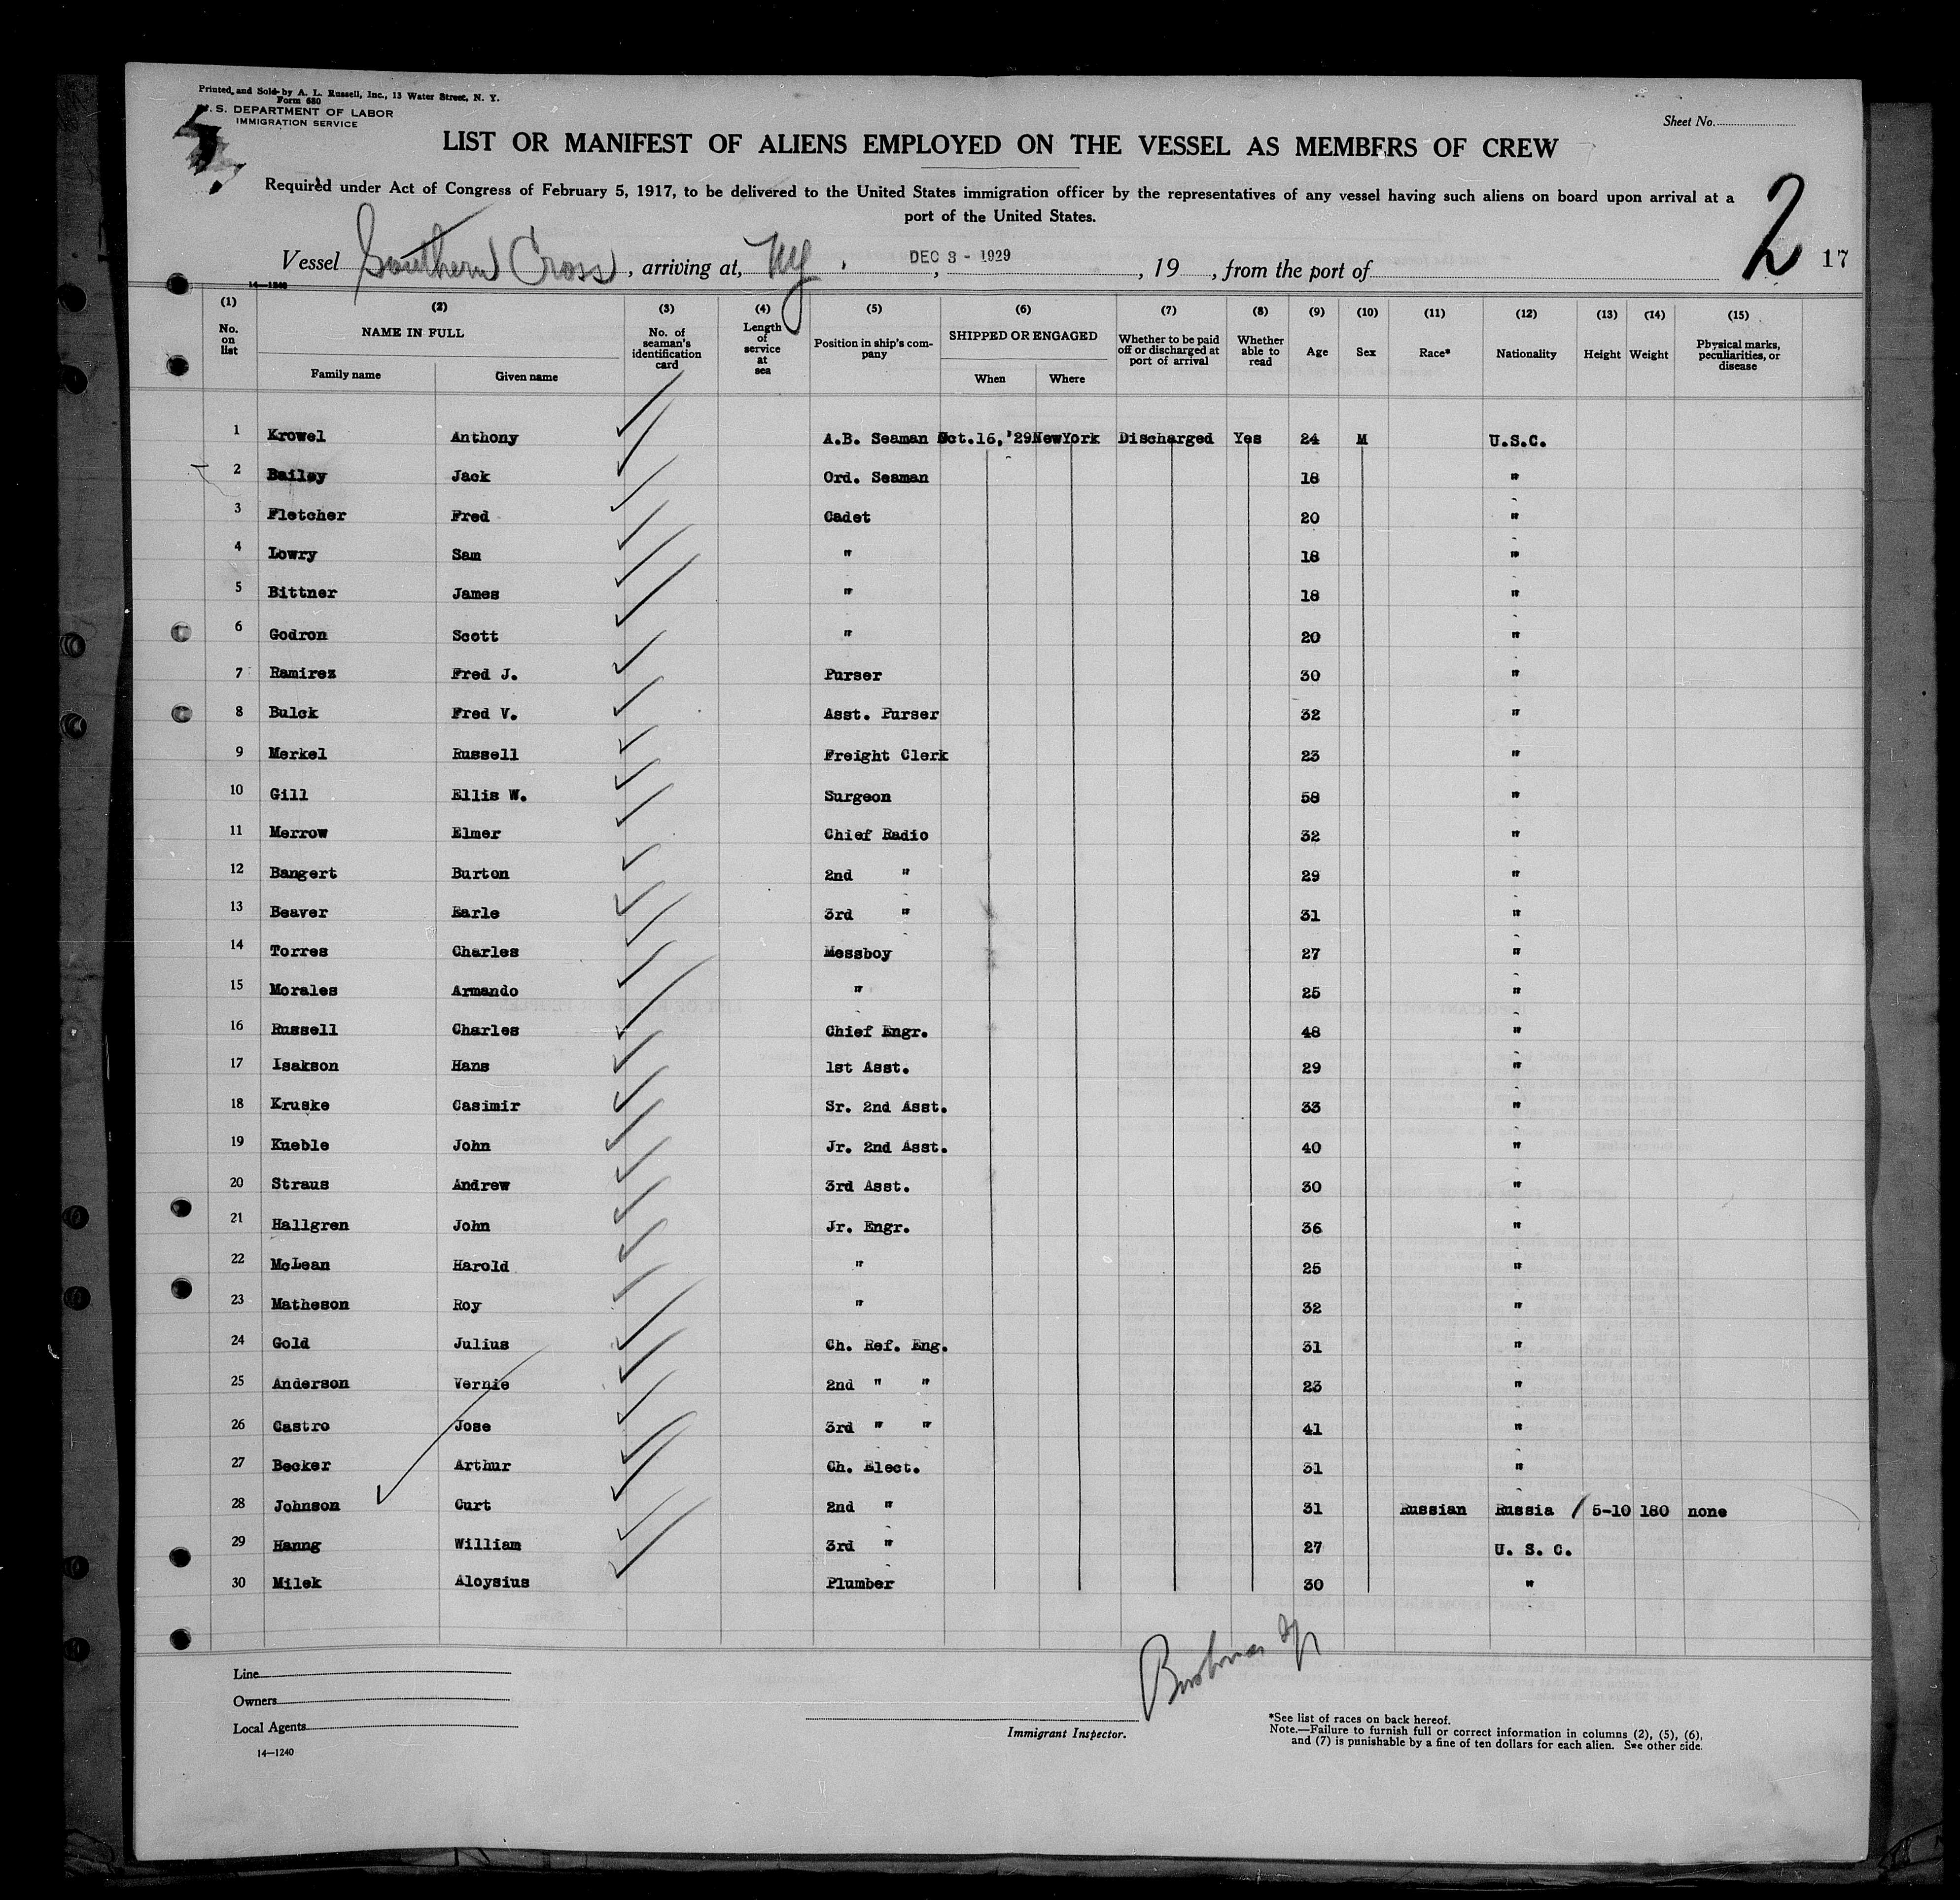 Printed and Sold by A. L. Russell, Inc., 13 Water Street, N. Y.
Form 680
U. S. DEPARTMENT OF LABOR
IMMIGRATION SERVICE
Sheet No.
LIST OR MANIFEST OF ALIENS EMPLOYED ON THE VESSEL AS MEMBERS OF CREW
Required under Act of Congress of February 5, 1917, to be delivered to the United States immigration officer by the representatives of any vessel having such aliens on board upon arrival at a
port of the United States.
2 17
Vessel Southern Cross, arriving at, NY, DEC 3 - 1929, 19, from the port of
14—1240
(1) (2) (3) (4) (5) (6) (7) (8) (9) (10) (11) (12) (13) (14) (15)
No. on list NAME IN FULL No. of seaman's identification card Length of service at sea Position in ship's company SHIPPED OR ENGAGED Whether to be paid off or discharged at port of arrival Whether able to read Age Sex Race* Nationality Height Weight Physical marks, peculiarities, or disease
Family name Given name When Where
1 Krowel Anthony A.B. Seaman Oct.16,'29 NewYork Discharged Yes 24 M U.S.C.
2 Bailey Jack Ord. Seaman 18 "
3 Fletcher Fred Cadet 20 "
4 Lowry Sam " 18 "
5 Bittner James " 18 "
6 Godron Scott " 20 "
7 Ramirez Fred J. Purser 30 "
8 Bulck Fred V. Asst. Purser 32 "
9 Merkel Russell Freight Clerk 23 "
10 Gill Ellis W. Surgeon 58 "
11 Merrow Elmer Chief Radio 32 "
12 Bangert Burton 2nd " 29 "
13 Beaver Earle 3rd " 31 "
14 Torres Charles Messboy 27 "
15 Morales Armando " 25 "
16 Russell Charles Chief Engr. 48 "
17 Isakson Hans 1st Asst. 29 "
18 Kruske Casimir Sr. 2nd Asst. 33 "
19 Kueble John Jr. 2nd Asst. 40 "
20 Straus Andrew 3rd Asst. 30 "
21 Hallgren John Jr. Engr. 36 "
22 McLean Harold " 25 "
23 Matheson Roy " 32 "
24 Gold Julius Ch. Ref. Eng. 31 "
25 Anderson Vernie 2nd " " 23 "
26 Castro Jose 3rd " " 41 "
27 Becker Arthur Ch. Elect. 31 "
28 Johnson Curt 2nd " 31 Russian Russia 5-10 180 none
29 Hanng William 3rd " 27 U. S. C.
30 Milek Aloysius Plumber 30 "
Line
Owners
Local Agents
14—1240
Immigrant Inspector.
*See list of races on back hereof.
Note.—Failure to furnish full or correct information in columns (2), (5), (6),
and (7) is punishable by a fine of ten dollars for each alien. See other side.